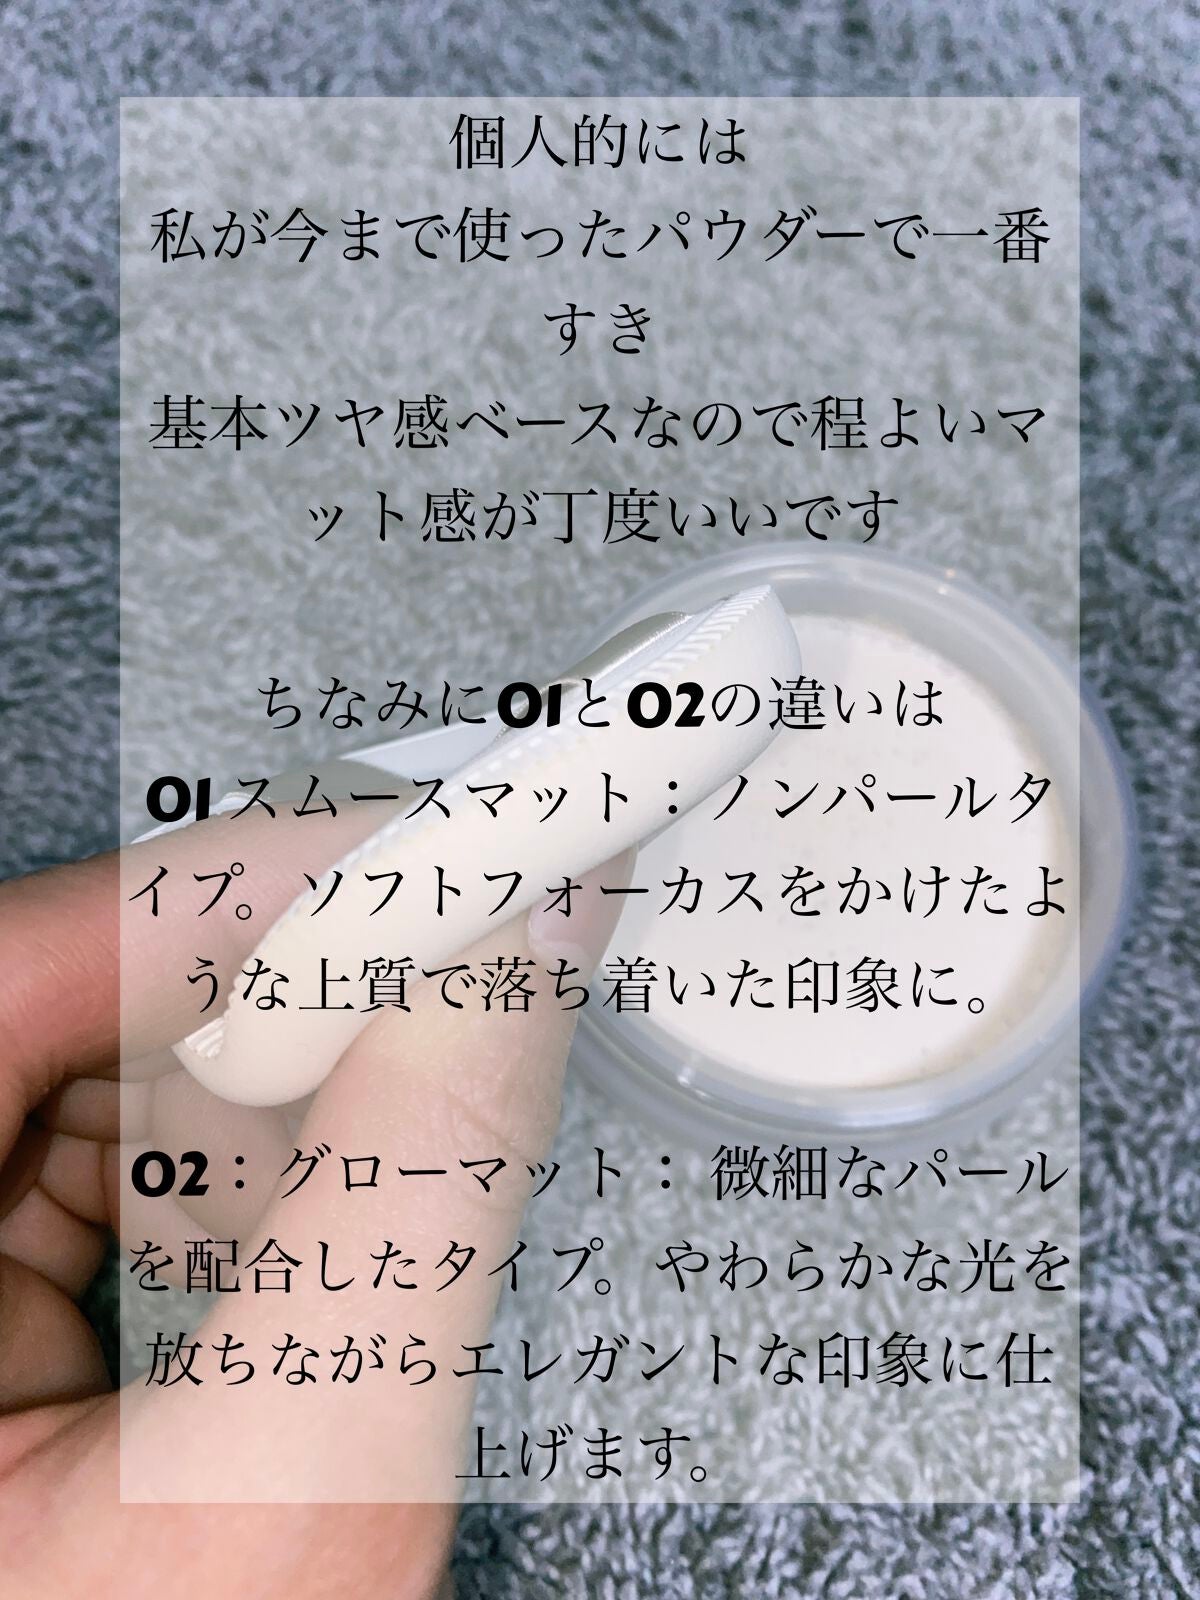 個人的には
私が今まで使ったパウダーで一番
すき
基本ツヤ感ベースなので程よいマ
ット感が丁度いいです
ちなみに01と02の違いは
01スムースマット：ノンパールタ
イプ。ソフトフォーカスをかけたよ
うな上質で落ち着いた印象に。
02：グローマット： 微細なパール
を配合したタイプ。やわらかな光を
放ちながらエレガントな印象に仕
上げます。